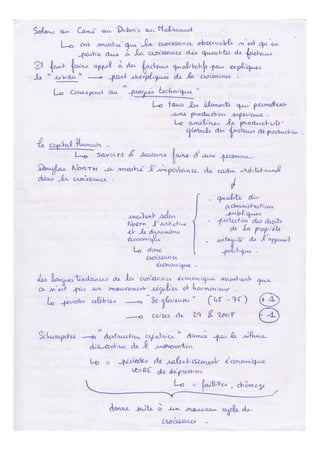 Solow ou Carré ou Dubois ou Malinvaud
↳ ont montré que la croissance observable n'est qu'en
partie due à la croissance des quantités de facteurs.
Il faut faire appel à des facteurs qualitatifs pour expliquer
le "résidu" → part inexpliquée de la croissance.
↳ Correspond au "progrès technique"
↳ tous les éléments qui permettent
une production supérieure.
↳ améliorer la productivité
globale des facteurs de production.
Le capital Humain.
↳ savoirs & savoirs faire d'une personne.
Douglas NORTH a montré l'importance du cadre institutionnel
dans la croissance.
- qualité des
administrations
publiques
- protection des droits
de la propriété
- intégrité de l'appareil
politique.
incitent selon
North, l'initiative
et le dynamisme
économique
↳ donc
croissance
économique.
Les longues tendances de la croissance économique montrent que
ce n'est pas un mouvement régulier et harmonieux.
↳ périodes altères → "30 glorieuses" (45-75) +1
→ crises de 29 & 2008 -1
Schumpeter → "destruction créatrice" donnée par le rythme
discontinu de l'innovation
↳ = périodes de ralentissement économique
VOIRE de dépression
↳ = faillites, chômage
donne suite à un nouveau cycle de
croissance.